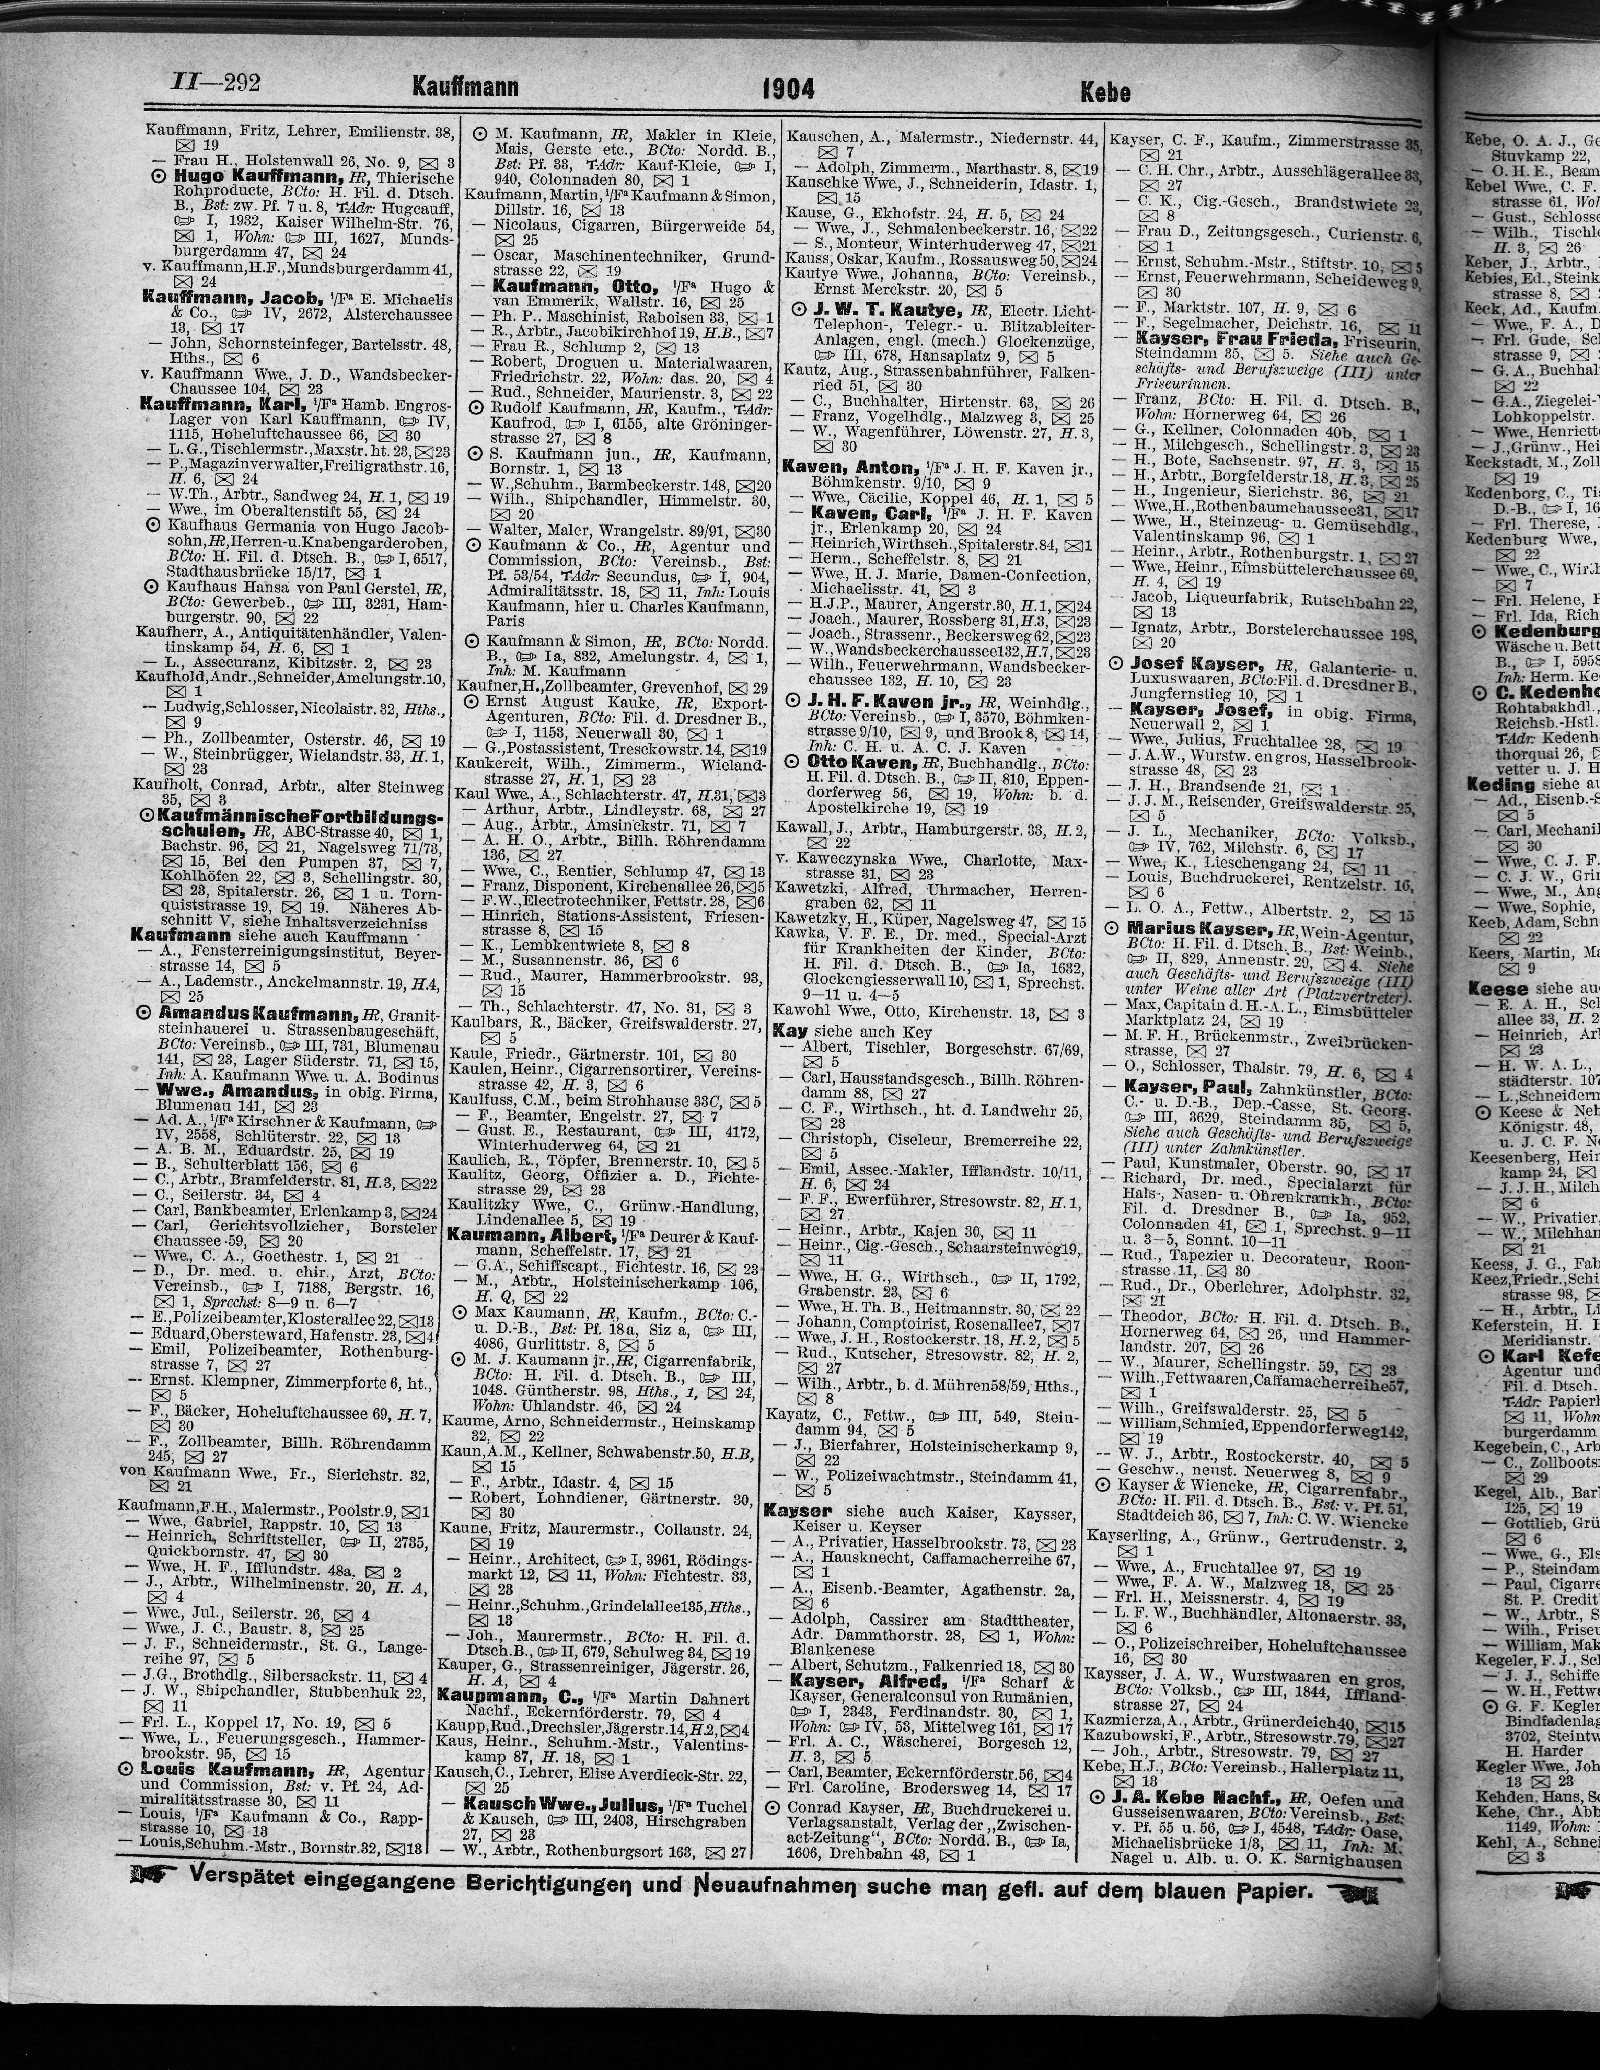 II—292
Kauffmann
1904
Kebe
Kauffmann, Fritz, Lehrer, Emilienstr. 38,
✉ 19
— Frau H., Holstenwall 26, No. 9, ✉ 3
⊙ Hugo Kauffmann, HR, Thierische
Rohproducte, BCto: H. Fil. d. Dtsch.
B., Bst: zw. Pf. 7 u. 8, TAdr: Hugcauff,
I, 1932, Kaiser Wilhelm-Str. 76,
✉ 1, Wohn: III, 1627, Munds-
burgerdamm 47, ✉ 24
v. Kauffmann, H.F., Mundsburgerdamm 41,
✉ 24
Kauffmann, Jacob, i/Fa E. Michaelis
& Co., IV, 2672, Alsterchaussee
13, ✉ 17
— John, Schornsteinfeger, Bartelsstr. 48,
Hths., ✉ 6
v. Kauffmann Wwe., J. D., Wandsbecker-
Chaussee 104, ✉ 23
Kauffmann, Karl, i/Fa Hamb. Engros-
Lager von Karl Kauffmann, IV,
1115, Hoheluftchaussee 66, ✉ 30
— L. G., Tischlermstr., Maxstr. ht. 23, ✉ 23
— P., Magazinverwalter, Freiligrathstr. 16,
H. 6, ✉ 24
— W. Th., Arbtr., Sandweg 24, H. 1, ✉ 19
— Wwe., im Oberaltenstift 55, ✉ 24
⊙ Kaufhaus Germania von Hugo Jacob-
sohn, HR, Herren- u. Knabengarderoben,
BCto: H. Fil. d. Dtsch. B., I, 6517,
Stadthausbrücke 15/17, ✉ 1
⊙ Kaufhaus Hansa von Paul Gerstel, HR,
BCto: Gewerbeb., III, 3291, Ham-
burgerstr. 90, ✉ 22
Kaufherr, A., Antiquitätenhändler, Valen-
tinskamp 54, H. 6, ✉ 1
— L., Assecuranz, Kibitzstr. 2, ✉ 23
Kaufhold, Andr., Schneider, Amelungstr. 10,
✉ 1
— Ludwig, Schlosser, Nicolaistr. 32, Hths.,
✉ 9
— Ph., Zollbeamter, Osterstr. 46, ✉ 19
— W., Steinbrügger, Wielandstr. 33, H. 1,
✉ 23
Kaufholt, Conrad, Arbtr., alter Steinweg
35, ✉ 3
⊙ Kaufmännische Fortbildungs-
schulen, HR, ABC-Strasse 40, ✉ 1,
Bachstr. 96, ✉ 21, Nagelsweg 71/73,
✉ 15, Bei den Pumpen 37, ✉ 7,
Kohlhöfen 22, ✉ 3, Schellingstr. 30,
✉ 23, Spitalerstr. 26, ✉ 1 u. Torn-
quiststrasse 19, ✉ 19. Näheres Ab-
schnitt V, siehe Inhaltsverzeichniss
Kaufmann siehe auch Kauffmann
— A., Fensterreinigungsinstitut, Beyer-
strasse 14, ✉ 5
— A., Lademstr., Anckelmannstr. 19, H. 4,
✉ 25
⊙ Amandus Kaufmann, HR, Granit-
steinhauerei u. Strassenbaugeschäft,
BCto: Vereinsb., III, 731, Blumenau
141, ✉ 23, Lager Süderstr. 71, ✉ 15,
Inh: A. Kaufmann Wwe. u. A. Bodinus
— Wwe., Amandus, in obig. Firma,
Blumenau 141, ✉ 23
— Ad. A., i/Fa Kirschner & Kaufmann,
IV, 2558, Schlüterstr. 22, ✉ 13
— A. B. M., Eduardstr. 25, ✉ 19
— B., Schulterblatt 156, ✉ 6
— C., Arbtr., Bramfelderstr. 81, H. 3, ✉ 22
— C., Seilerstr. 34, ✉ 4
— Carl, Bankbeamter, Erlenkamp 3, ✉ 24
— Carl, Gerichtsvollzieher, Borsteler
Chaussee 59, ✉ 20
— Wwe., C. A., Goethestr. 1, ✉ 21
— D., Dr. med. u. chir., Arzt, BCto:
Vereinsb., I, 7188, Bergstr. 16,
✉ 1, Sprechst: 8—9 u. 6—7
— E., Polizeibeamter, Klosterallee 22, ✉ 13
— Eduard, Obersteward, Hafenstr. 23, ✉ 4
— Emil, Polizeibeamter, Rothenburg-
strasse 7, ✉ 27
— Ernst. Klempner, Zimmerpforte 6, ht.,
✉ 5
— F., Bäcker, Hoheluftchaussee 69, H. 7,
✉ 30
— F., Zollbeamter, Billh. Röhrendamm
245, ✉ 27
von Kaufmann Wwe., Fr., Sierichstr. 32,
✉ 21
Kaufmann, F. H., Malermstr., Poolstr. 9, ✉ 1
— Wwe., Gabriel, Rappstr. 10, ✉ 13
— Heinrich, Schriftsteller, II, 2735,
Quickbornstr. 47, ✉ 30
— Wwe., H. F., Ifflundstr. 48a, ✉ 2
— J., Arbtr., Wilhelminenstr. 20, H. A,
✉ 4
— Wwe., Jul., Seilerstr. 26, ✉ 4
— Wwe., J. C., Baustr. 3, ✉ 25
— J. F., Schneidermstr., St. G., Lange-
reihe 97, ✉ 5
— J.G., Brothdlg., Silbersackstr. 11, ✉ 4
— J. W., Shipchandler, Stubbenhuk 22,
✉ 11
— Frl. L., Koppel 17, No. 19, ✉ 5
— Wwe., L., Feuerungsgesch., Hammer-
brookstr. 95, ✉ 15
⊙ Louis Kaufmann, HR, Agentur
und Commission, Bst: v. Pf. 24, Ad-
miralitätsstrasse 30, ✉ 11
— Louis, i/Fa Kaufmann & Co., Rapp-
strasse 10, ✉ 13
— Louis, Schuhm.-Mstr., Bornstr. 32, ✉ 13
⊙ M. Kaufmann, HR, Makler in Kleie,
Mais, Gerste etc., BCto: Nordd. B.,
Bst: Pf. 33, TAdr: Kauf-Kleie, I,
940, Colonnaden 80, ✉ 1
Kaufmann, Martin, i/Fa Kaufmann & Simon,
Dillstr. 16, ✉ 13
— Nicolaus, Cigarren, Bürgerweide 54,
✉ 25
— Oscar, Maschinentechniker, Grund-
strasse 22, ✉ 19
— Kaufmann, Otto, i/Fa Hugo &
van Emmerik, Wallstr. 16, ✉ 25
— Ph. P., Maschinist, Raboisen 33, ✉ 1
— R., Arbtr., Jacobikirchhof 19, H.B., ✉ 7
— Frau R., Schlump 2, ✉ 13
— Robert, Droguen u. Materialwaaren,
Friedrichstr. 22, Wohn: das. 20, ✉ 4
— Rud., Schneider, Maurienstr. 3, ✉ 22
⊙ Rudolf Kaufmann, HR, Kaufm., TAdr:
Kaufrod, I, 6155, alte Gröninger-
strasse 27, ✉ 8
⊙ S. Kaufmann jun., HR, Kaufmann,
Bornstr. 1, ✉ 13
— W., Schuhm., Barmbeckerstr. 148, ✉ 20
— Wilh., Shipchandler, Himmelstr. 30,
✉ 20
— Walter, Maler, Wrangelstr. 89/91, ✉ 30
⊙ Kaufmann & Co., HR, Agentur und
Commission, BCto: Vereinsb., Bst:
Pf. 53/54, TAdr: Secundus, I, 904,
Admiralitätsstr. 18, ✉ 11, Inh: Louis
Kaufmann, hier u. Charles Kaufmann,
Paris
⊙ Kaufmann & Simon, HR, BCto: Nordd.
B., Ia, 832, Amelungstr. 4, ✉ 1,
Inh: M. Kaufmann
Kaufner, H., Zollbeamter, Grevenhof, ✉ 29
⊙ Ernst August Kauke, HR, Export-
Agenturen, BCto: Fil. d. Dresdner B.,
I, 1153, Neuerwall 30, ✉ 1
— G., Postassistent, Tresckowstr. 14, ✉ 19
Kaukereit, Wilh., Zimmerm., Wieland-
strasse 27, H. 1, ✉ 23
Kaul Wwe., A., Schlachterstr. 47, H.31, ✉ 3
— Arthur, Arbtr., Lindleystr. 68, ✉ 27
— Aug., Arbtr., Amsinckstr. 71, ✉ 7
— A. H. O., Arbtr., Billh. Röhrendamm
136, ✉ 27
— Wwe., C., Rentier, Schlump 47, ✉ 13
— Franz, Disponent, Kirchenallee 26, ✉ 5
— F.W., Electrotechniker, Fettstr. 28, ✉ 6
— Hinrich, Stations-Assistent, Friesen-
strasse 8, ✉ 15
— K., Lembkentwiete 8, ✉ 8
— M., Susannenstr. 36, ✉ 6
— Rud., Maurer, Hammerbrookstr. 93,
✉ 15
— Th., Schlachterstr. 47, No. 31, ✉ 3
Kaulbars, R., Bäcker, Greifswalderstr. 27,
✉ 5
Kaule, Friedr., Gärtnerstr. 101, ✉ 30
Kaulen, Heinr., Cigarrensortirer, Vereins-
strasse 42, H. 3, ✉ 6
Kaulfuss, C.M., beim Strohhause 33C, ✉ 5
— F., Beamter, Engelstr. 27, ✉ 7
— Gust. E., Restaurant, III, 4172,
Winterhuderweg 64, ✉ 21
Kaulich, R., Töpfer, Brennerstr. 10, ✉ 5
Kaulitz, Georg, Offizier a. D., Fichte-
strasse 29, ✉ 23
Kaulitzky Wwe., C., Grünw.-Handlung,
Lindenallee 5, ✉ 19
Kaumann, Albert, i/Fa Deurer & Kauf-
mann, Scheffelstr. 17, ✉ 21
— G.A., Schiffscapt., Fichtestr. 16, ✉ 23
— M., Arbtr., Holsteinischerkamp 106,
H. Q, ✉ 22
⊙ Max Kaumann, HR, Kaufm., BCto: C.-
u. D.-B., Bst: Pf. 18a, Siz a, III,
4086, Gurlittstr. 8, ✉ 5
⊙ M. J. Kaumann jr., HR, Cigarrenfabrik,
BCto: H. Fil. d. Dtsch. B., III,
1048. Güntherstr. 98, Hths., 1, ✉ 24,
Wohn: Uhlandstr. 46, ✉ 24
Kaume, Arno, Schneidermstr., Heinskamp
32, ✉ 22
Kaun, A.M., Kellner, Schwabenstr. 50, H.B,
✉ 15
— F., Arbtr., Idastr. 4, ✉ 15
— Robert, Lohndiener, Gärtnerstr. 30,
✉ 30
Kaune, Fritz, Maurermstr., Collaustr. 24,
✉ 19
— Heinr., Architect, I, 3961, Rödings-
markt 12, ✉ 11, Wohn: Fichtestr. 33,
✉ 23
— Heinr., Schuhm., Grindelallee 135, Hths.,
✉ 13
— Joh., Maurermstr., BCto: H. Fil. d.
Dtsch.B., II, 679, Schulweg 34, ✉ 19
Kauper, G., Strassenreiniger, Jägerstr. 26,
H. A, ✉ 4
Kaupmann, C., i/Fa Martin Dahnert
Nachf., Eckernförderstr. 79, ✉ 4
Kaupp, Rud., Drechsler, Jägerstr. 14, H.2, ✉ 4
Kaus, Heinr., Schuhm.-Mstr., Valentins-
kamp 87, H. 18, ✉ 1
Kausch, C., Lehrer, Elise Averdieck-Str. 22,
✉ 25
— Kausch Wwe., Julius, i/Fa Tuchel
& Kausch, III, 2403, Hirschgraben
27, ✉ 23
— W., Arbtr., Rothenburgsort 163, ✉ 27
Kauschen, A., Malermstr., Niedernstr. 44,
✉ 7
— Adolph, Zimmerm., Marthastr. 8, ✉ 19
Kauschke Wwe., J., Schneiderin, Idastr. 1,
✉ 15
Kause, G., Ekhofstr. 24, H. 5, ✉ 24
— Wwe., J., Schmalenbeckerstr. 16, ✉ 22
— S., Monteur, Winterhuderweg 47, ✉ 21
Kauss, Oskar, Kaufm., Rossausweg 50, ✉ 24
Kautye Wwe., Johanna, BCto: Vereinsb.,
Ernst Merckstr. 20, ✉ 5
⊙ J. W. T. Kautye, HR, Electr. Licht-
Telephon-, Telegr.- u. Blitzableiter-
Anlagen, engl. (mech.) Glockenzüge,
III, 678, Hansaplatz 9, ✉ 5
Kautz, Aug., Strassenbahnführer, Falken-
ried 51, ✉ 30
— C., Buchhalter, Hirtenstr. 63, ✉ 26
— Franz, Vogelhdlg., Malzweg 3, ✉ 25
— W., Wagenführer, Löwenstr. 27, H. 3,
✉ 30
Kaven, Anton, i/Fa J. H. F. Kaven jr.,
Böhmkenstr. 9/10, ✉ 9
— Wwe., Cäcilie, Koppel 46, H. 1, ✉ 5
— Kaven, Carl, i/Fa J. H. F. Kaven
jr., Erlenkamp 20, ✉ 24
— Heinrich, Wirthsch., Spitalerstr. 84, ✉ 1
— Herm., Scheffelstr. 8, ✉ 21
— Wwe., H. J. Marie, Damen-Confection,
Michaelisstr. 41, ✉ 3
— H.J.P., Maurer, Angerstr. 30, H. 1, ✉ 24
— Joach., Maurer, Rossberg 31, H.3, ✉ 23
— Joach., Strassenr., Beckersweg 62, ✉ 23
— W., Wandsbeckerchaussee 132, H.7, ✉ 23
— Wilh., Feuerwehrmann, Wandsbecker-
chaussee 132, H. 10, ✉ 23
⊙ J. H. F. Kaven jr., HR, Weinhdlg.,
BCto: Vereinsb., I, 3570, Böhmken-
strasse 9/10, ✉ 9, und Brook 8, ✉ 14,
Inh: C. H. u. A. C. J. Kaven
⊙ Otto Kaven, HR, Buchhandlg., BCto:
H. Fil. d. Dtsch. B., II, 810, Eppen-
dorferweg 56, ✉ 19, Wohn: b. d.
Apostelkirche 19, ✉ 19
Kawall, J., Arbtr., Hamburgerstr. 33, H. 2,
✉ 22
v. Kaweczynska Wwe., Charlotte, Max-
strasse 31, ✉ 23
Kawetzki, Alfred, Uhrmacher, Herren-
graben 62, ✉ 11
Kawetzky, H., Küper, Nagelsweg 47, ✉ 15
Kawka, V. F. E., Dr. med., Special-Arzt
für Krankheiten der Kinder, BCto:
H. Fil. d. Dtsch. B., Ia, 1632,
Glockengiesserwall 10, ✉ 1, Sprechst.
9—11 u. 4—5
Kawohl Wwe., Otto, Kirchenstr. 13, ✉ 3
Kay siehe auch Key
— Albert, Tischler, Borgeschstr. 67/69,
✉ 5
— Carl, Hausstandsgesch., Billh. Röhren-
damm 88, ✉ 27
— C. F., Wirthsch., ht. d. Landwehr 25,
✉ 23
— Christoph, Ciseleur, Bremerreihe 22,
✉ 5
— Emil, Assec.-Makler, Ifflandstr. 10/11,
H. 6, ✉ 24
— F. F., Ewerführer, Stresowstr. 82, H. 1,
✉ 27
— Heinr., Arbtr., Kajen 30, ✉ 11
— Heinr., Cig.-Gesch., Schaarsteinweg 19,
✉ 11
— Wwe., H. G., Wirthsch., II, 1792,
Grabenstr. 23, ✉ 6
— Wwe., H. Th. B., Heitmannstr. 30, ✉ 22
— Johann, Comptoirist, Rosenallee 7, ✉ 7
— Wwe., J. H., Rostockerstr. 18, H. 2, ✉ 5
— Rud., Kutscher, Stresowstr. 82, H. 2,
✉ 27
— Wilh., Arbtr., b. d. Mühren 58/59, Hths.,
✉ 8
Kayatz, C., Fettw., III, 549, Stein-
damm 94, ✉ 5
— J., Bierfahrer, Holsteinischerkamp 9,
✉ 22
— W., Polizeiwachtmstr., Steindamm 41,
✉ 5
Kayser siehe auch Kaiser, Kaysser,
Keiser u. Keyser
— A., Privatier, Hasselbrookstr. 73, ✉ 23
— A., Hausknecht, Caffamacherreihe 67,
✉ 1
— A., Eisenb.-Beamter, Agathenstr. 2a,
✉ 6
— Adolph, Cassirer am Stadttheater,
Adr. Dammthorstr. 28, ✉ 1, Wohn:
Blankenese
— Albert, Schutzm., Falkenried 18, ✉ 30
— Kayser, Alfred, i/Fa Scharf &
Kayser, Generalconsul von Rumänien,
I, 2343, Ferdinandstr. 30, ✉ 1,
Wohn: IV, 53, Mittelweg 161, ✉ 17
— Frl. A. C., Wäscherei, Borgesch 12,
H. 3, ✉ 5
— Carl, Beamter, Eckernförderstr. 56, ✉ 4
— Frl. Caroline, Brodersweg 14, ✉ 17
⊙ Conrad Kayser, HR, Buchdruckerei u.
Verlagsanstalt, Verlag der „Zwischen-
act-Zeitung“, BCto: Nordd. B., Ia,
1606, Drehbahn 43, ✉ 1
Kayser, C. F., Kaufm., Zimmerstrasse 35,
✉ 21
— C. H. Chr., Arbtr., Ausschlägerallee 33,
✉ 27
— C. K., Cig.-Gesch., Brandstwiete 23,
✉ 8
— Frau D., Zeitungsgesch., Curienstr. 6,
✉ 1
— Ernst, Schuhm.-Mstr., Stiftstr. 10, ✉ 5
— Ernst, Feuerwehrmann, Scheideweg 9,
✉ 30
— F., Marktstr. 107, H. 9, ✉ 6
— F., Segelmacher, Deichstr. 16, ✉ 11
— Kayser, Frau Frieda, Friseurin,
Steindamm 35, ✉ 5. Siehe auch Ge-
schäfts- und Berufszweige (III) unter
Friseurinnen.
— Franz, BCto: H. Fil. d. Dtsch. B.,
Wohn: Hornerweg 64, ✉ 26
— G., Kellner, Colonnaden 40b, ✉ 1
— H., Milchgesch., Schellingstr. 3, ✉ 23
— H., Bote, Sachsenstr. 97, H. 3, ✉ 15
— H., Arbtr., Borgfelderstr. 18, H. 3, ✉ 25
— H., Ingenieur, Sierichstr. 36, ✉ 21
— Wwe., H., Rothenbaumchaussee 31, ✉ 17
— Wwe., H., Steinzeug- u. Gemüsehdlg.,
Valentinskamp 96, ✉ 1
— Heinr., Arbtr., Rothenburgstr. 1, ✉ 27
— Wwe., Heinr., Eimsbüttelerchaussee 69,
H. 4, ✉ 19
— Jacob, Liqueurfabrik, Rutschbahn 22,
✉ 13
— Ignatz, Arbtr., Borstelerchaussee 198,
✉ 20
⊙ Josef Kayser, HR, Galanterie- u.
Luxuswaaren, BCto: Fil. d. Dresdner B.,
Jungfernstieg 10, ✉ 1
— Kayser, Josef, in obig. Firma,
Neuerwall 2, ✉ 1
— Wwe., Julius, Fruchtallee 28, ✉ 19
— J.A.W., Wurstw. en gros, Hasselbrook-
strasse 48, ✉ 23
— J. H., Brandsende 21, ✉ 1
— J. J. M., Reisender, Greifswalderstr. 25,
✉ 5
— J. L., Mechaniker, BCto: Volksb.,
IV, 762, Milchstr. 6, ✉ 17
— Wwe., K., Lieschengang 24, ✉ 11
— Louis, Buchdruckerei, Rentzelstr. 16,
✉ 6
— L. O. A., Fettw., Albertstr. 2, ✉ 15
⊙ Marius Kayser, HR, Wein-Agentur,
BCto: H. Fil. d. Dtsch. B., Bst: Weinb.,
II, 829, Annenstr. 29, ✉ 4. Siehe
auch Geschäfts- und Berufszweige (III)
unter Weine aller Art (Platzvertreter).
— Max, Capitain d. H.-A. L., Eimsbütteler
Marktplatz 24, ✉ 19
— M. F. H., Brückenmstr., Zweibrücken-
strasse, ✉ 27
— O., Schlosser, Thalstr. 79, H. 6, ✉ 4
— Kayser, Paul, Zahnkünstler, BCto:
C.- u. D.-B., Dep.-Casse, St. Georg.
III, 3629, Steindamm 35, ✉ 5,
Siehe auch Geschäfts- und Berufszweige
(III) unter Zahnkünstler.
— Paul, Kunstmaler, Oberstr. 90, ✉ 17
— Richard, Dr. med., Specialarzt für
Hals-, Nasen- u. Ohrenkrankh., BCto:
Fil. d. Dresdner B., Ia, 952,
Colonnaden 41, ✉ 1, Sprechst. 9—11
u. 3—5, Sonnt. 10—11
— Rud., Tapezier u. Decorateur, Roon-
strasse 11, ✉ 30
— Rud., Dr., Oberlehrer, Adolphstr. 32,
✉ 21
— Theodor, BCto: H. Fil. d. Dtsch. B.,
Hornerweg 64, ✉ 26, und Hammer-
landstr. 207, ✉ 26
— W., Maurer, Schellingstr. 59, ✉ 23
— Wilh., Fettwaaren, Caffamacherreihe 57,
✉ 1
— Wilh., Greifswalderstr. 25, ✉ 5
— William, Schmied, Eppendorferweg 142,
✉ 19
— W. J., Arbtr., Rostockerstr. 40, ✉ 5
— Geschw., neust. Neuerweg 8, ✉ 9
⊙ Kayser & Wiencke, HR, Cigarrenfabr.,
BCto: H. Fil. d. Dtsch. B., Bst: v. Pf. 51,
Stadtdeich 36, ✉ 7, Inh: C. W. Wiencke
Kayserling, A., Grünw., Gertrudenstr. 2,
✉ 1
— Wwe., A., Fruchtallee 97, ✉ 19
— Wwe., F. A. W., Malzweg 18, ✉ 25
— Frl. H., Meissnerstr. 4, ✉ 19
— L. F. W., Buchhändler, Altonaerstr. 33,
✉ 6
— O., Polizeischreiber, Hoheluftchaussee
16, ✉ 30
Kaysser, J. A. W., Wurstwaaren en gros,
BCto: Volksb., III, 1844, Iffland-
strasse 27, ✉ 24
Kazmierza, A., Arbtr., Grünerdeich 40, ✉ 15
Kazubowski, F., Arbtr., Stresowstr. 79, ✉ 27
— Joh., Arbtr., Stresowstr. 79, ✉ 27
Kebe, H.J., BCto: Vereinsb., Hallerplatz 11,
✉ 13
⊙ J. A. Kebe Nachf., HR, Oefen und
Gusseisenwaaren, BCto: Vereinsb., Bst:
v. Pf. 55 u. 56, I, 4548, TAdr: Oase,
Michaelisbrücke 1/3, ✉ 11, Inh: M.
Nagel u. Alb. u. O. K. Sarnighausen
Verspätet eingegangene Berichtigungen und Neuaufnahmen suche man gefl. auf dem blauen Papier.
Kebe, O. A. J.,
Stuvkamp 22,
— O. H. E.,
Kebel Wwe., C. F.
strasse 61,
— Gust.,
— Wilh.,
H. 3, ✉ 26
Keber, J., Arbtr.,
Kebies, Ed.,
strasse 8, ✉
Keck, Ad., Kaufm.
— Wwe., F. A.,
— Frl. Gude,
strasse 9, ✉
— G. A.,
✉ 22
— G.A.,
Lohkoppelstr.
— Wwe.,
— J., Grünw.,
Keckstadt, M.,
✉ 19
Kedenborg, C.,
D.-B., I,
— Frl. Therese,
Kedenburg Wwe.,
✉ 22
— Wwe., C.,
✉ 7
— Frl. Helene,
— Frl. Ida,
⊙ Kedenburg
Wäsche u.
B., I,
Inh: Herm.
⊙ C.
Rohtabakhdl.,
Reichsb.-Hstl.
TAdr:
thorquai 26,
vetter u. J. H.
Keding siehe
— Ad., Eisenb.-
✉ 5
— Carl,
✉ 30
— Wwe., C. J. F.
— C. J. W.,
— Wwe., M.,
— Wwe., Sophie,
Keeb, Adam,
✉ 22
Keers, Martin,
✉ 9
Keese siehe
— E. A. H.,
allee 33, H. 2
— Heinrich,
✉ 23
— H. W. A. L.,
städterstr. 107
— L.,
⊙ Keese &
Königstr. 48,
u. J. C. F.
Keesenberg,
kamp 24, ✉
— J. J. H.,
✉ 6
— W., Privatier,
— W.,
✉ 21
Keess, J. G.,
Keez, Friedr.,
strasse 98, ✉
— H., Arbtr.,
Keferstein, H.
Meridianstr.
⊙ Karl
Agentur
Fil. d. Dtsch.
TAdr:
✉ 11,
burgerdamm
Kegebein, C.,
— C.,
✉ 29
Kegel, Alb.,
125, ✉ 19
— Gottlieb,
✉ 6
— Wwe., G.,
— P.,
— Paul,
St. P.
— W., Arbtr.,
— Wilh.,
— William,
Kegeler, F. J.,
— J. J.,
— W. H.,
⊙ G. F.
Bindfadenlag
3702,
H. Harder
Kegler Wwe.,
13 ✉ 23
Kehden, Hans,
Kehe, Chr.,
1149, Wohn:
Kehl, A.,
✉ 3